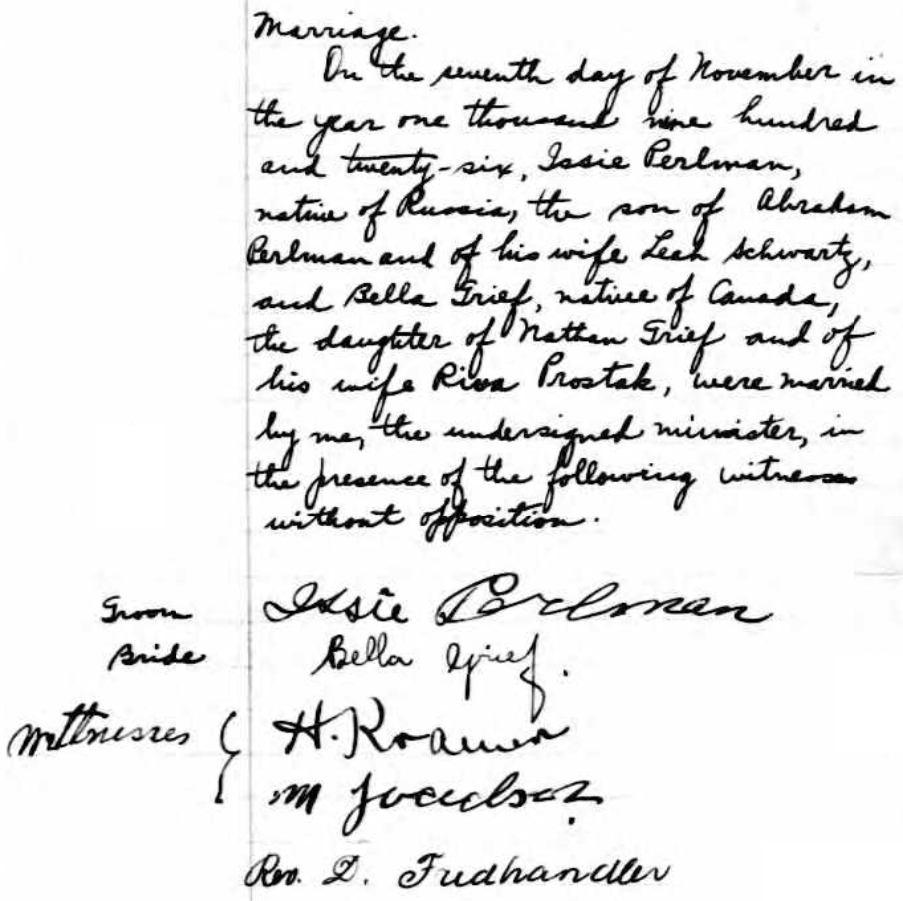 Marriage.
On the seventh day of November in
the year one thousand nine hundred
and twenty-six, Issie Perlman,
native of Russia, the son of Abraham
Perlman and of his wife Leah Schwartz,
and Bella Grief, native of Canada,
the daughter of Nathan Grief and of
his wife Riva Prostak, were married
by me, the undersigned minister, in
the presence of the following witnesses
without opposition.
Groom Issie Perlman
Bride Bella Grief.
Witnesses H.
M
Rev. D. Fredhandler